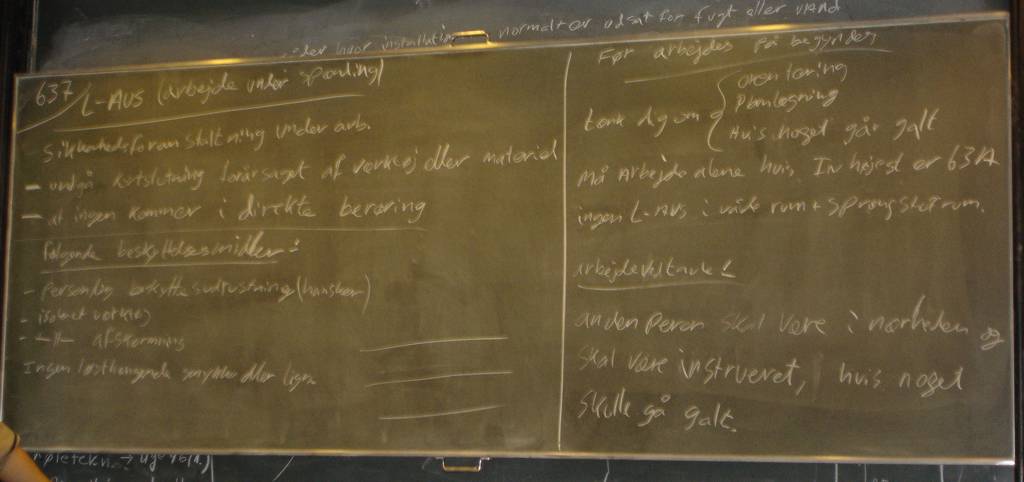 eller hvor installation normalt er udsat for fugt eller vand
637
L-AUS (arbejde under spænding)
Sikkerhedsforanstaltning under arb.
- undgå kortslutning forårsaget af værktøj eller materiel
- at ingen kommer i direkte berøring
følgende beskyttelsesmidler:
- Personlig beskyttelsesudrustning (handsker)
- isoleret værktøj
- -||- afskærmning
Ingen løsthængende smykker eller lign.
Før arbejdes på begyndes
tænk dig om
orientering
Planlægning
Hvis noget går galt
må Arbejde alene hvis In højest er 63A
ingen L-AUS i våde rum + sprængstofrum.
arbejde
anden person skal være i nærheden og
skal være instrueret, hvis noget
skulle gå galt.